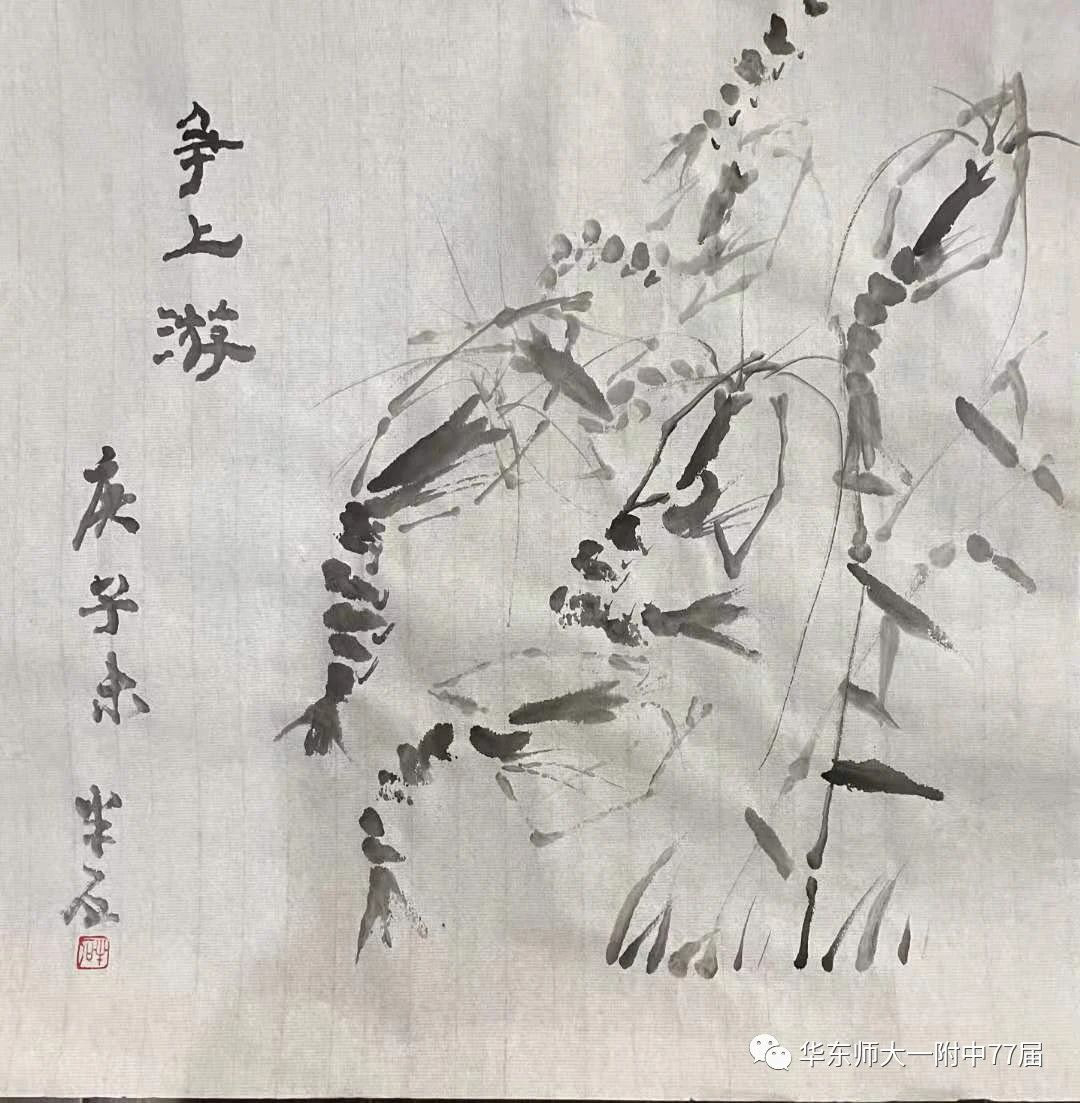 争上游
庚子末
半石
半石
华东师大一附中77届